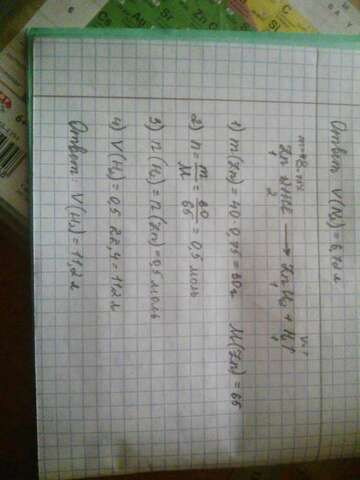 Ответ: V(N₂) = 6,72 л
m=40г 75% V-?
Zn + 2HCl → ZnCl₂ + H₂↑
1 2 1 1
1) m(Zn) = 40 · 0,75 = 30г M(Zn) = 65
2) n = m/M = 30/65 = 0,5 моль
3) n(H₂) = n(Zn) = 0,5 моль
4) V(H₂) = 0,5 · 22,4 = 11,2 л
Ответ: V(H₂) = 11,2 л